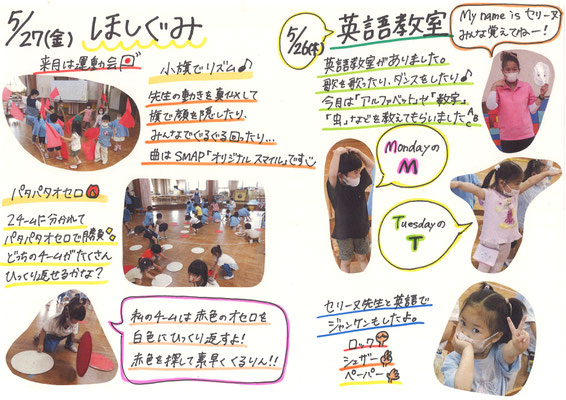 5/27(金) ほしぐみ
来月は運動会
小旗でリズム♪
先生の動きを真似して
旗で顔を隠したり、
みんなでぐるぐる回ったり…
曲はSMAP「オリジナルスマイル」です
パタパタオセロ
2チームに分かれて
パタパタオセロで勝負
どっちのチームがたくさん
ひっくり返せるかな?
私のチームは赤色のオセロを
白色にひっくり返すよ!
赤色を探して素早くくるりん!!
5/26(木) 英語教室
My name is セリーヌ
みんな覚えてねー!
英語教室がありました。
歌を歌ったり、ダンスをしたり♪
今月は「アルファベット」や「数字」
「虫」などを教えてもらいました ABC
Mondayの
M
Tuesdayの
T
セリーヌ先生と英語で
ジャンケンもしたよ。
ロック
シェザー
ペーパー